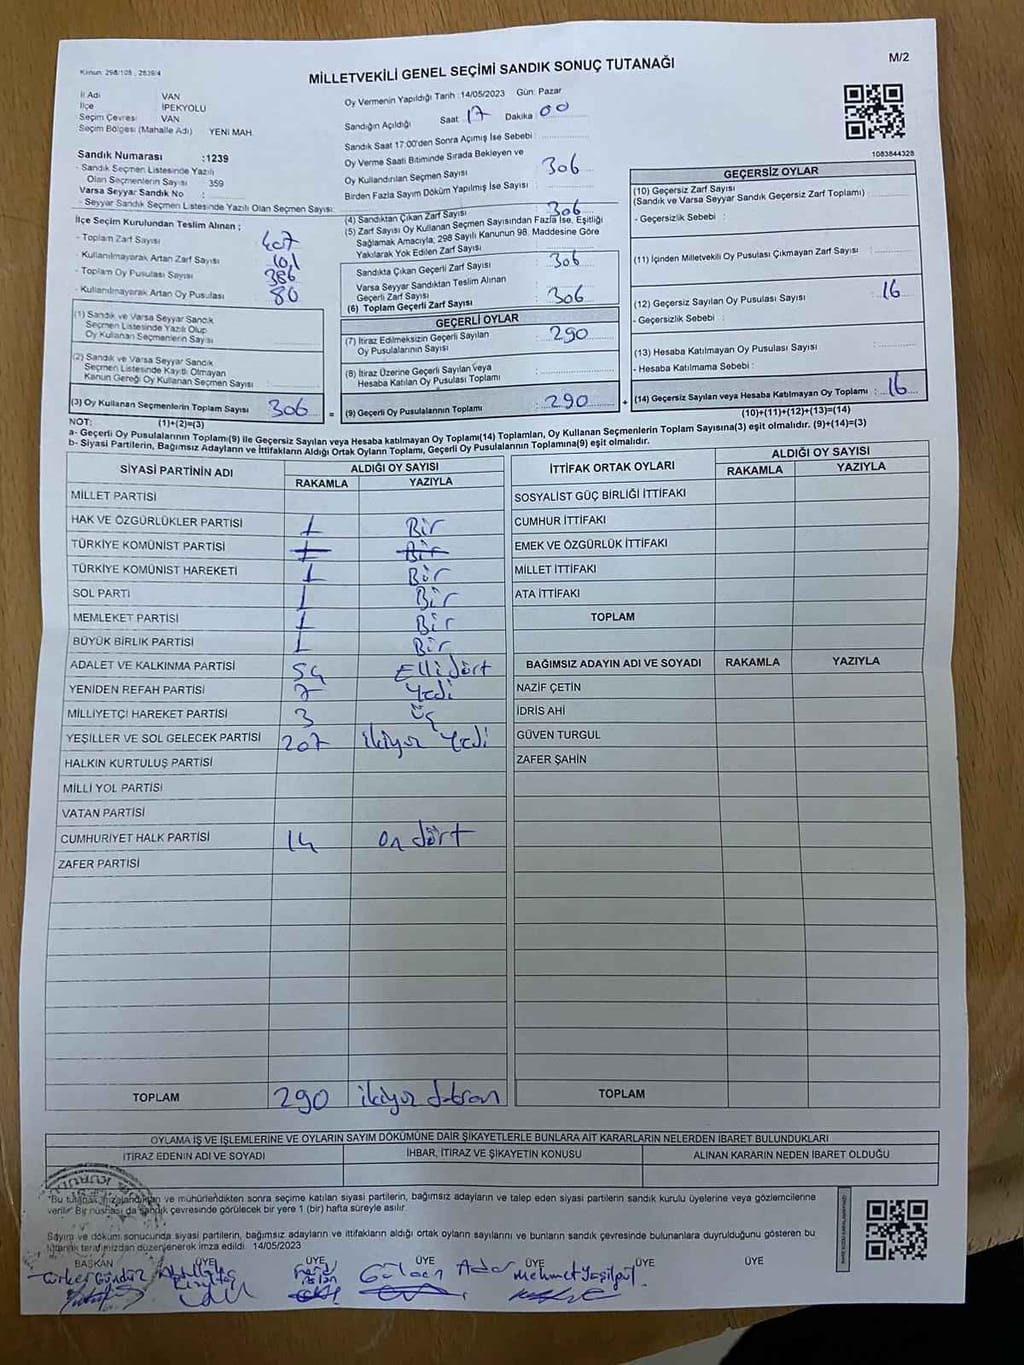 Kanun: 298/105 , 2839/4
MİLLETVEKİLİ GENEL SEÇİMİ SANDIK SONUÇ TUTANAĞI
M/2
İl Adı VAN
İlçe İPEKYOLU
Seçim Çevresi VAN
Seçim Bölgesi (Mahalle Adı) YENİ MAH.
Sandık Numarası :1239
- Sandık Seçmen Listesinde Yazılı
Olan Seçmenlerin Sayısı : 359
Varsa Seyyar Sandık No :
- Seyyar Sandık Seçmen Listesinde Yazılı Olan Seçmen Sayısı:
İlçe Seçim Kurulundan Teslim Alınan ;
- Toplam Zarf Sayısı : 407
- Kullanılmayarak Artan Zarf Sayısı : 101
- Toplam Oy Pusulası Sayısı : 386
- Kullanılmayarak Artan Oy Pusulası : 80
(1) Sandık ve Varsa Seyyar Sandık
Seçmen Listesinde Yazılı Olup
Oy Kullanan Seçmenlerin Sayısı :
(2) Sandık ve Varsa Seyyar Sandık
Seçmen Listesinde Kayıtlı Olmayan
Kanun Gereği Oy Kullanan Seçmen Sayısı :
(3) Oy Kullanan Seçmenlerin Toplam Sayısı : 306
(1)+(2)=(3)
Oy Vermenin Yapıldığı Tarih : 14/05/2023 Gün: Pazar
Sandığın Açıldığı Saat 17 Dakika 00
Sandık Saat 17:00'den Sonra Açımış İse Sebebi :
Oy Verme Saati Bitiminde Sırada Bekleyen ve
Oy Kullandırılan Seçmen Sayısı : 306
Birden Fazla Sayım Döküm Yapılmış İse Sayısı :
(4) Sandıktan Çıkan Zarf Sayısı : 306
(5) Zarf Sayısı Oy Kullanan Seçmen Sayısından Fazla İse, Eşitliği
Sağlamak Amacıyla, 298 Sayılı Kanunun 98. Maddesine Göre
Yakılarak Yok Edilen Zarf Sayısı :
Sandıkta Çıkan Geçerli Zarf Sayısı : 306
Varsa Seyyar Sandıktan Teslim Alınan
Geçerli Zarf Sayısı :
(6) Toplam Geçerli Zarf Sayısı : 306
GEÇERLİ OYLAR
(7) İtiraz Edilmeksizin Geçerli Sayılan
Oy Pusulalarının Sayısı : 290
(8) İtiraz Üzerine Geçerli Sayılan veya
Hesaba Katılan Oy Pusulası Toplamı :
= (9) Geçerli Oy Pusulalarının Toplamı : 290 +
1083844328
GEÇERSİZ OYLAR
(10) Geçersiz Zarf Sayısı
(Sandık ve Varsa Seyyar Sandık Geçersiz Zarf Toplamı)
- Geçersizlik Sebebi :
(11) İçinden Milletvekili Oy Pusulası Çıkmayan Zarf Sayısı :
(12) Geçersiz Sayılan Oy Pusulası Sayısı : 16
- Geçersizlik Sebebi :
(13) Hesaba Katılmayan Oy Pusulası Sayısı :
- Hesaba Katılmama Sebebi :
(14) Geçersiz Sayılan veya Hesaba Katılmayan Oy Toplamı : 16
(10)+(11)+(12)+(13)=(14)
NOT:
a- Geçerli Oy Pusulalarının Toplamı(9) ile Geçersiz Sayılan veya Hesaba katılmayan Oy Toplamı(14) Toplamları, Oy Kullanan Seçmenlerin Toplam Sayısına(3) eşit olmalıdır. (9)+(14)=(3)
b- Siyasi Partilerin, Bağımsız Adayların ve İttifakların Aldığı Ortak Oyların Toplamı, Geçerli Oy Pusulalarının Toplamına(9) eşit olmalıdır.
SİYASİ PARTİNİN ADI ALDIĞI OY SAYISI
RAKAMLA YAZIYLA
MİLLET PARTİSİ
HAK VE ÖZGÜRLÜKLER PARTİSİ 1 Bir
TÜRKİYE KOMÜNİST PARTİSİ 1 Bir
TÜRKİYE KOMÜNİST HAREKETİ 1 Bir
SOL PARTİ 1 Bir
MEMLEKET PARTİSİ 1 Bir
BÜYÜK BİRLİK PARTİSİ 1 Bir
ADALET VE KALKINMA PARTİSİ 54 Elli dört
YENİDEN REFAH PARTİSİ 7 Yedi
MİLLİYETÇİ HAREKET PARTİSİ 3 üç
YEŞİLLER VE SOL GELECEK PARTİSİ 207 ikiyüz Yedi
HALKIN KURTULUŞ PARTİSİ
MİLLİ YOL PARTİSİ
VATAN PARTİSİ
CUMHURİYET HALK PARTİSİ 14 on dört
ZAFER PARTİSİ
TOPLAM 290 ikiyüz doksan
İTTİFAK ORTAK OYLARI ALDIĞI OY SAYISI
RAKAMLA YAZIYLA
SOSYALİST GÜÇ BİRLİĞİ İTTİFAKI
CUMHUR İTTİFAKI
EMEK VE ÖZGÜRLÜK İTTİFAKI
MİLLET İTTİFAKI
ATA İTTİFAKI
TOPLAM
BAĞIMSIZ ADAYIN ADI VE SOYADI RAKAMLA YAZIYLA
NAZİF ÇETİN
İDRİS AHİ
GÜVEN TURGUL
ZAFER ŞAHİN
TOPLAM
OYLAMA İŞ VE İŞLEMLERİNE VE OYLARIN SAYIM DÖKÜMÜNE DAİR ŞİKAYETLERLE BUNLARA AİT KARARLARIN NELERDEN İBARET BULUNDUKLARI
İTİRAZ EDENİN ADI VE SOYADI İHBAR, İTİRAZ VE ŞİKAYETİN KONUSU ALINAN KARARIN NEDEN İBARET OLDUĞU
"Bu tutanak imzalandıktan ve mühürlendikten sonra seçime katılan siyasi partilerin, bağımsız adayların ve talep eden siyasi partilerin sandık kurulu üyelerine veya gözlemcilerine
verilir" Bir nüshası da sandık çevresinde görülecek bir yere 1 (bir) hafta süreyle asılır.
Sayım ve döküm sonucunda siyasi partilerin, bağımsız adayların ve ittifakların aldığı ortak oyların sayılarını ve bunların sandık çevresinde bulunanlara duyrulduğunu gösteren bu
tutanak tarafımızdan düzenlenerek imza edildi. 14/05/2023
BAŞKAN ÜYE ÜYE ÜYE ÜYE ÜYE ÜYE
Türker Gündüz Gülcen Adar Mehmet Yeşilyut